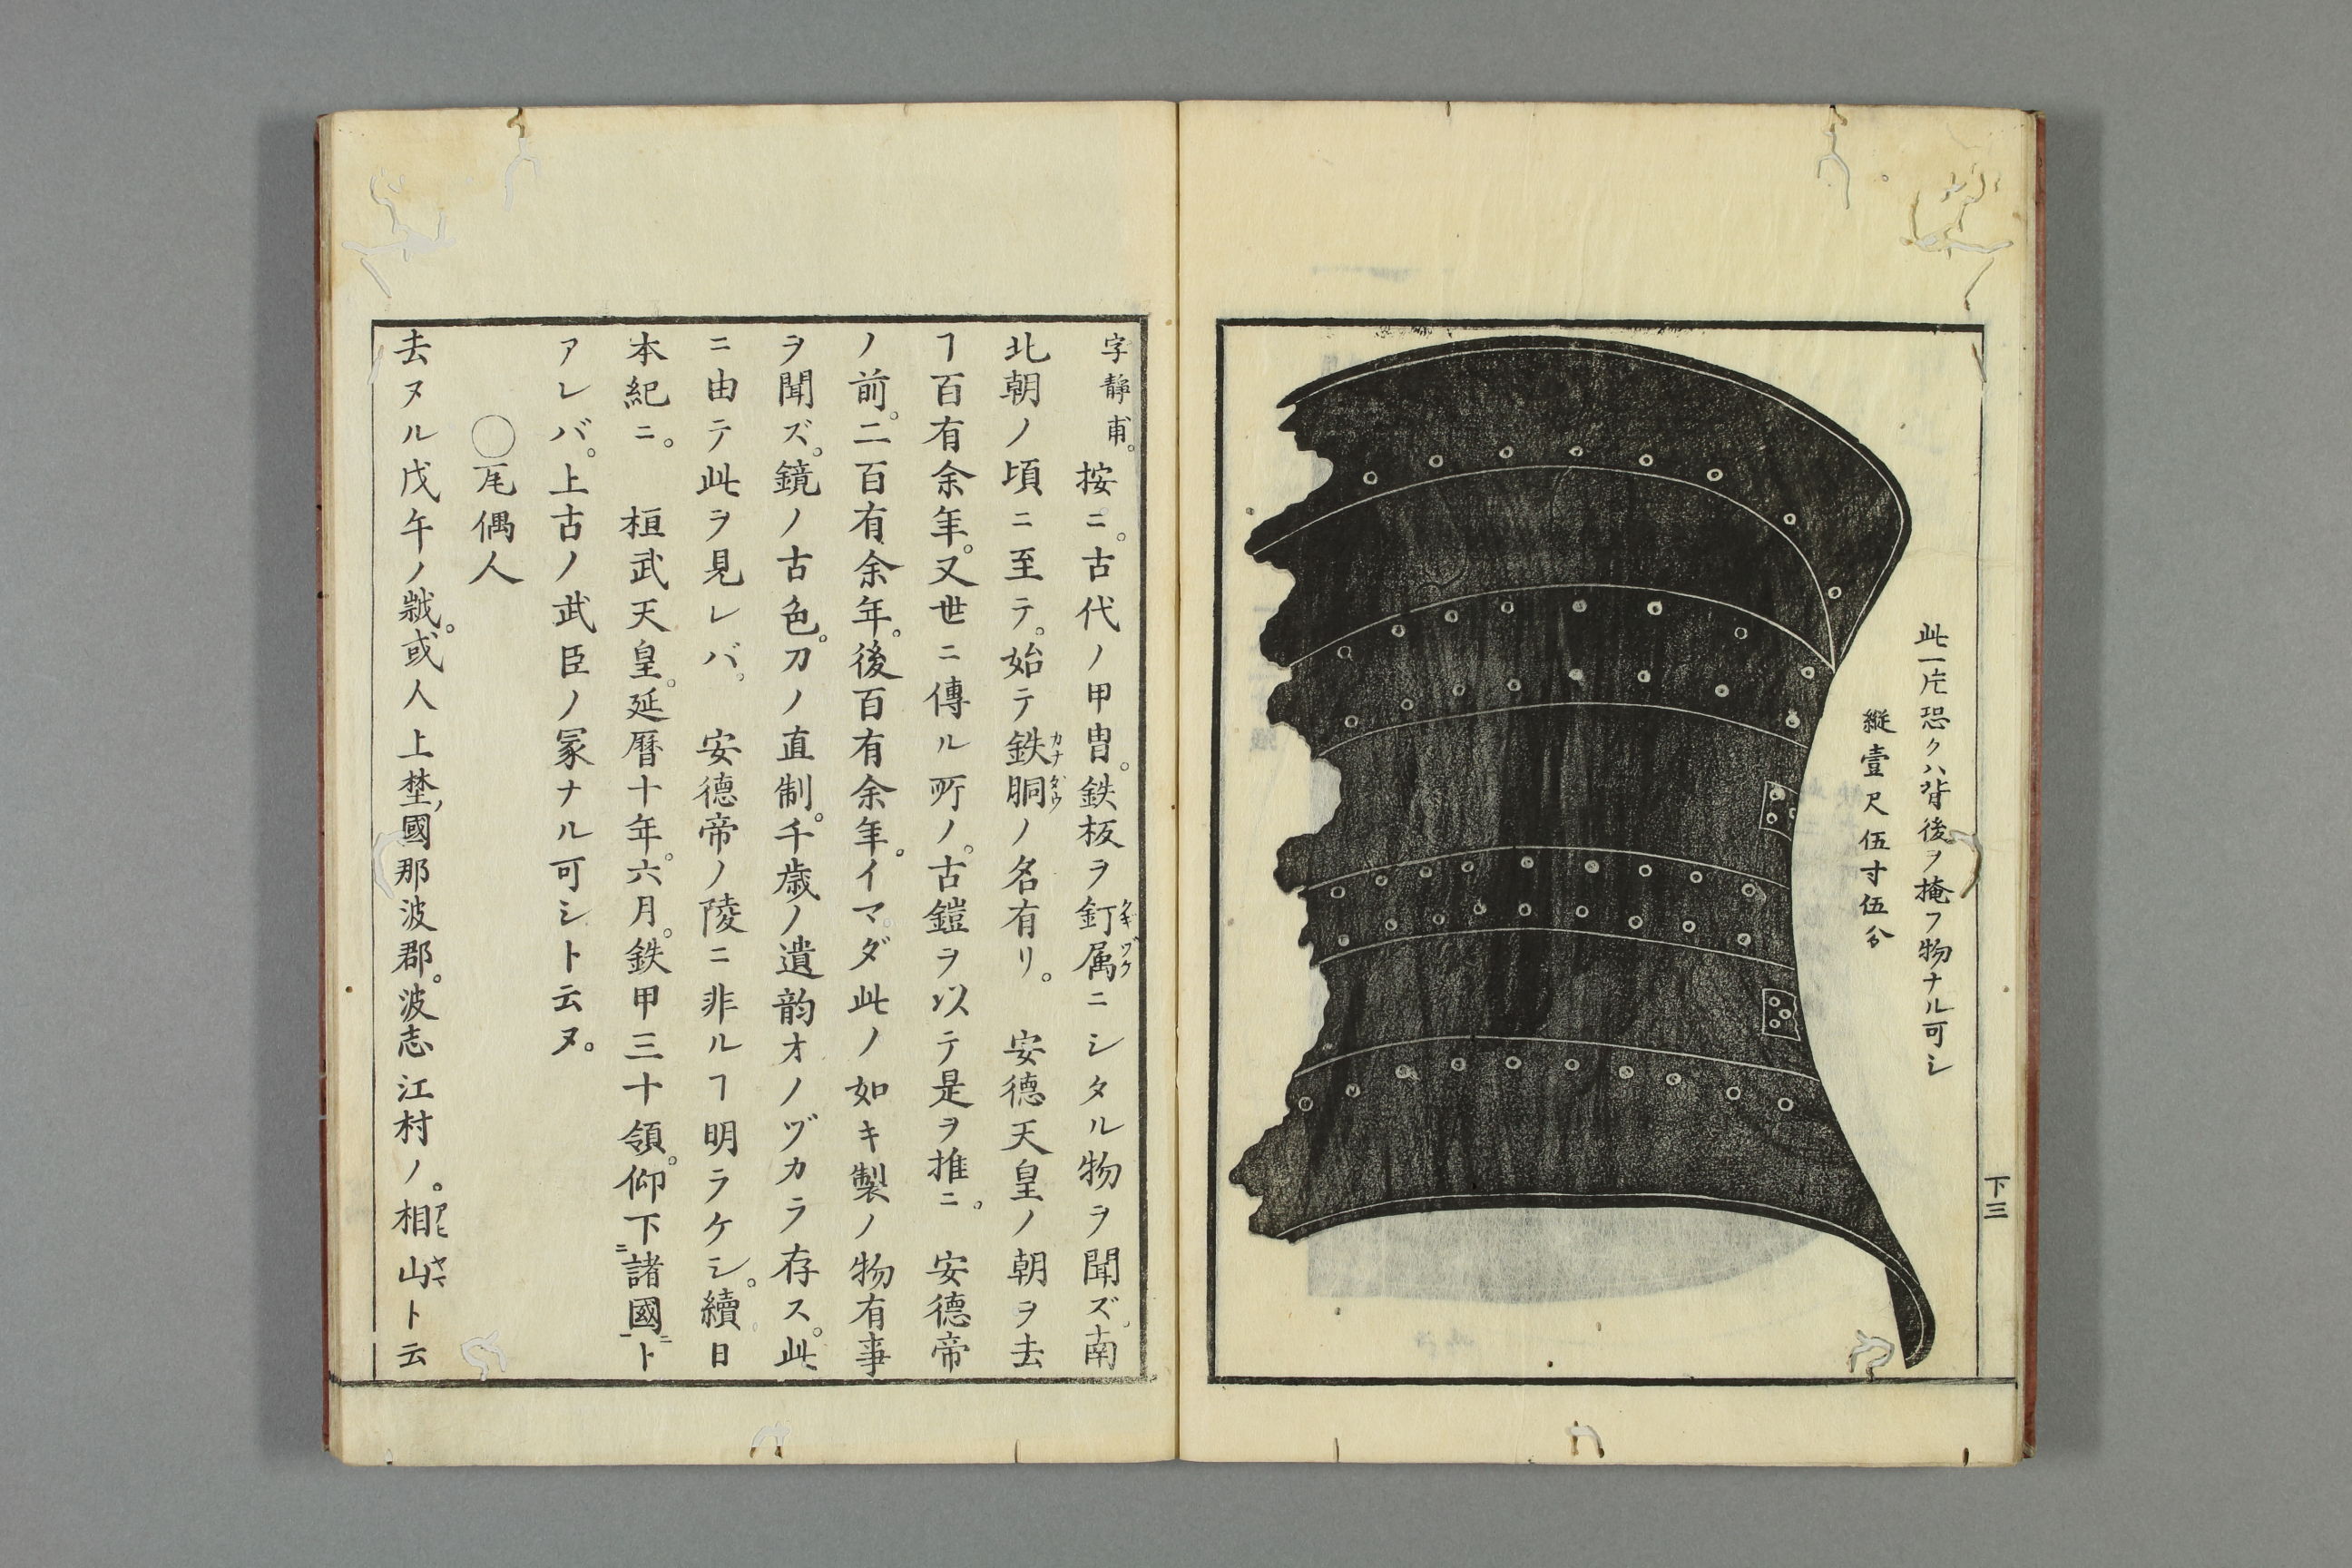 此一片恐クハ背後ヲ掩フ物ナル可シ
縦壹尺伍寸伍分
下三
字靜甫。按ニ。古代ノ甲冑。鉄板ヲ釘属ニシタル物ヲ聞ズ。南
クギヅケ
北朝ノ頃ニ至テ。始テ鉄胴ノ名有リ。 安德天皇ノ朝ヲ去
カナドウ
ヿ百有余年。又世ニ傳ル所ノ。古鎧ヲ以テ是ヲ推ニ。 安德帝
ノ前。二百有余年。後百有余年。イマダ此ノ如キ製ノ物有事
ヲ聞ズ。鏡ノ古色。刀ノ直制。千歳ノ遺韵オノヅカラ存ス。此
ニ由テ此ヲ見レバ。 安德帝ノ陵ニ非ルヿ明ラケシ。續日
本紀ニ。 桓武天皇。延暦十年。六月。鉄甲三十領。仰下ニ諸國一ト
アレバ。上古ノ武臣ノ冢ナル可シト云ヌ。
○瓦偶人
去ヌル戊午ノ歳。或人上埜ノ國那波郡。波志江村ノ。相山ト云
アヒヤマ